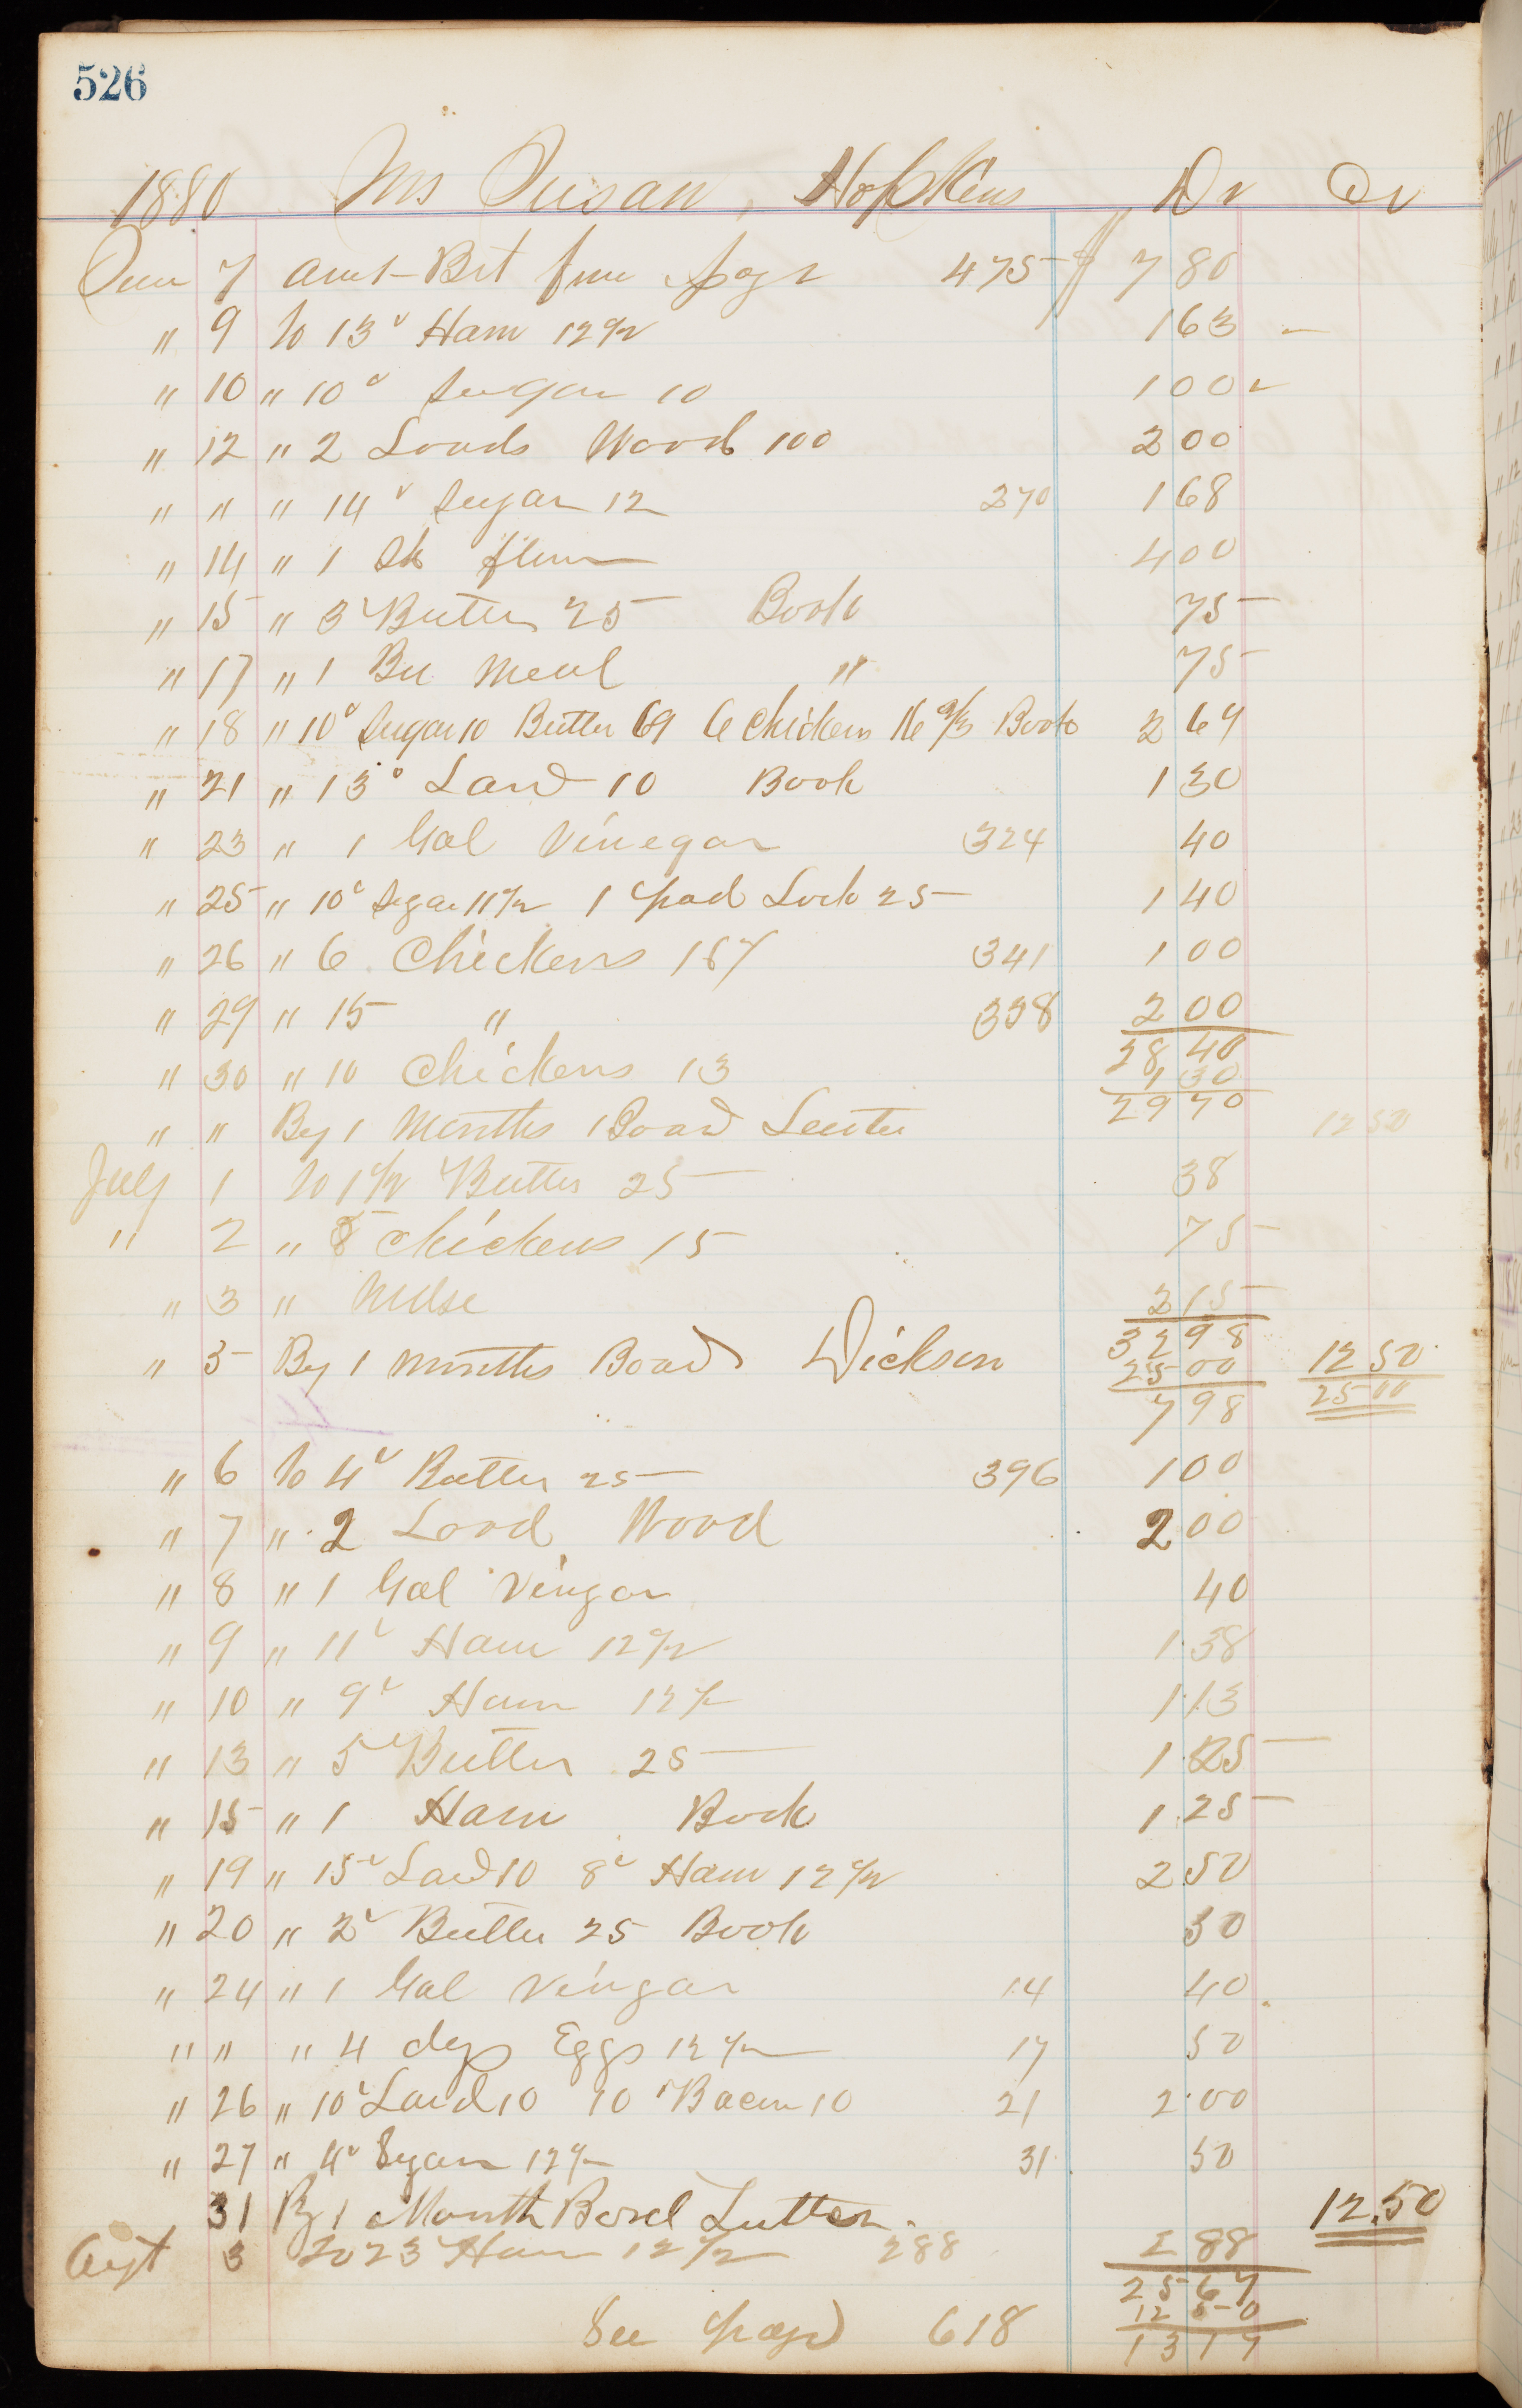 526
1880 Mrs Susan, Hopkins Dr Cr
June 7 amt Brt from page 475 $ 7 80
" 9 To 13# Ham 12 1/2 1 63
" 10 " 10# Sugar 10 1 00
" 12 " 2 Loads Wood 100 2 00
" " " 14# Sugar 12 270 1 68
" 14 " 1 Sk flour 4 00
" 15 " 3# Butter 25 Book 75
" 17 " 1 Bu Meal " 75
" 18 " 10# Sugar 10 Butter 64 6 Chickens 16 2/3 Book 2 64
" 21 " 13# Lard 10 Book 1 30
" 23 " 1 Gal Vinegar 324 40
" 25 " 10# Sugar 11 1/2 1 pad Lock 25 1 40
" 26 " 6 Chickens 167 341 1 00
" 29 " 15 " 358 2 00
28 40
" 30 " 10 Chickens 13 1 30
29 70
" " By 1 Months Board Leuter 12 50
July 1 To 1 1/2 Butter 25 38
" 2 " 5 Chickens 15 75
" 3 " Mdse 2 15
32 98
" 5 By 1 months Board Dickson 25 00 12 50
7 98 25 00
" 6 To 4# Butter 25 396 1 00
" 7 " 2 Load Wood 2 00
" 8 " 1 Gal Vingar 40
" 9 " 11# Ham 12 1/2 1 38
" 10 " 9# Ham 12 1/2 1 13
" 13 " 5# Butter 25 1 25
" 15 " 1 Ham Book 1 25
" 19 " 15# Lard 10 8# Ham 12 1/2 2 50
" 20 " 2# Butter 25 Book 50
" 24 " 1 Gal Vingar 14 40
" " " 4 dz Eggs 12 1/2 17 50
" 26 " 10# Lard 10 10# Bacon 10 21 2 00
" 27 " 4# Sugar 12 1/2 31 50
31 By 1 Month Bord Lutter. 12.50
Agt 3 To 23# Ham 12 1/2 288 2 88
25 67
12 50
See page 618 13 17